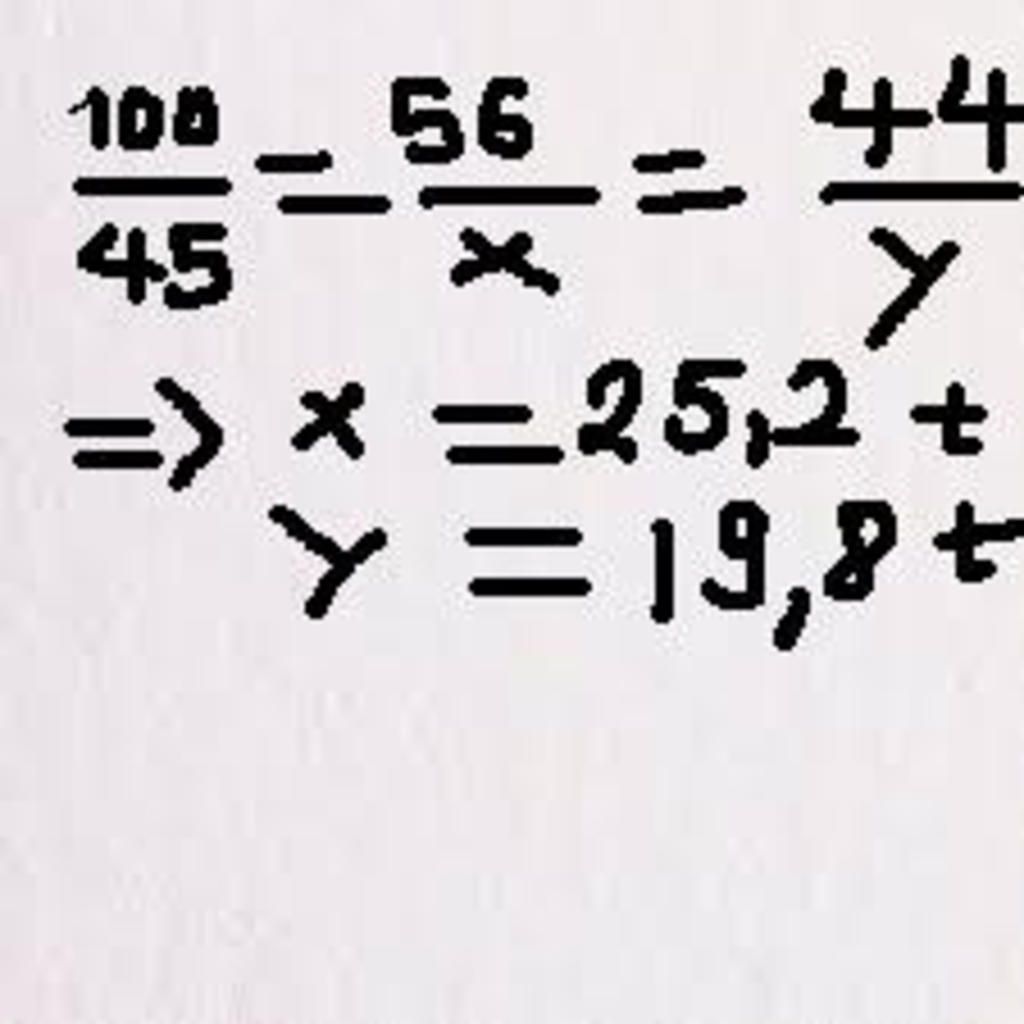 100/45 = 56/x = 44/y
=> x = 25,2 t
y = 19,8 t